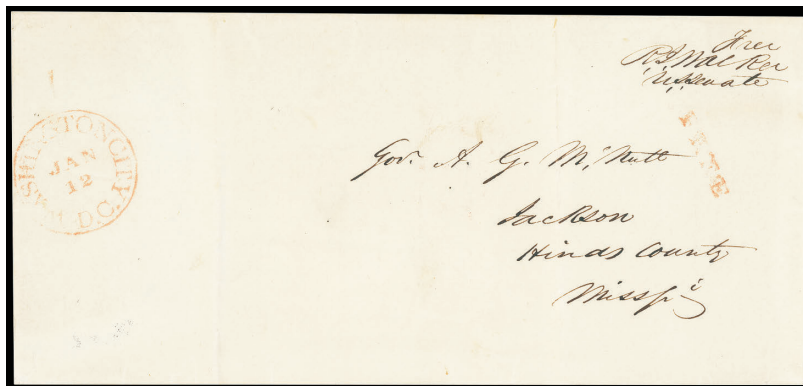 Free
R J Walker
US Senate
FREE
WASHINGTON CITY D.C.
JAN
12
Gov. A. G. McNutt
Jackson
Hinds County
Misspi